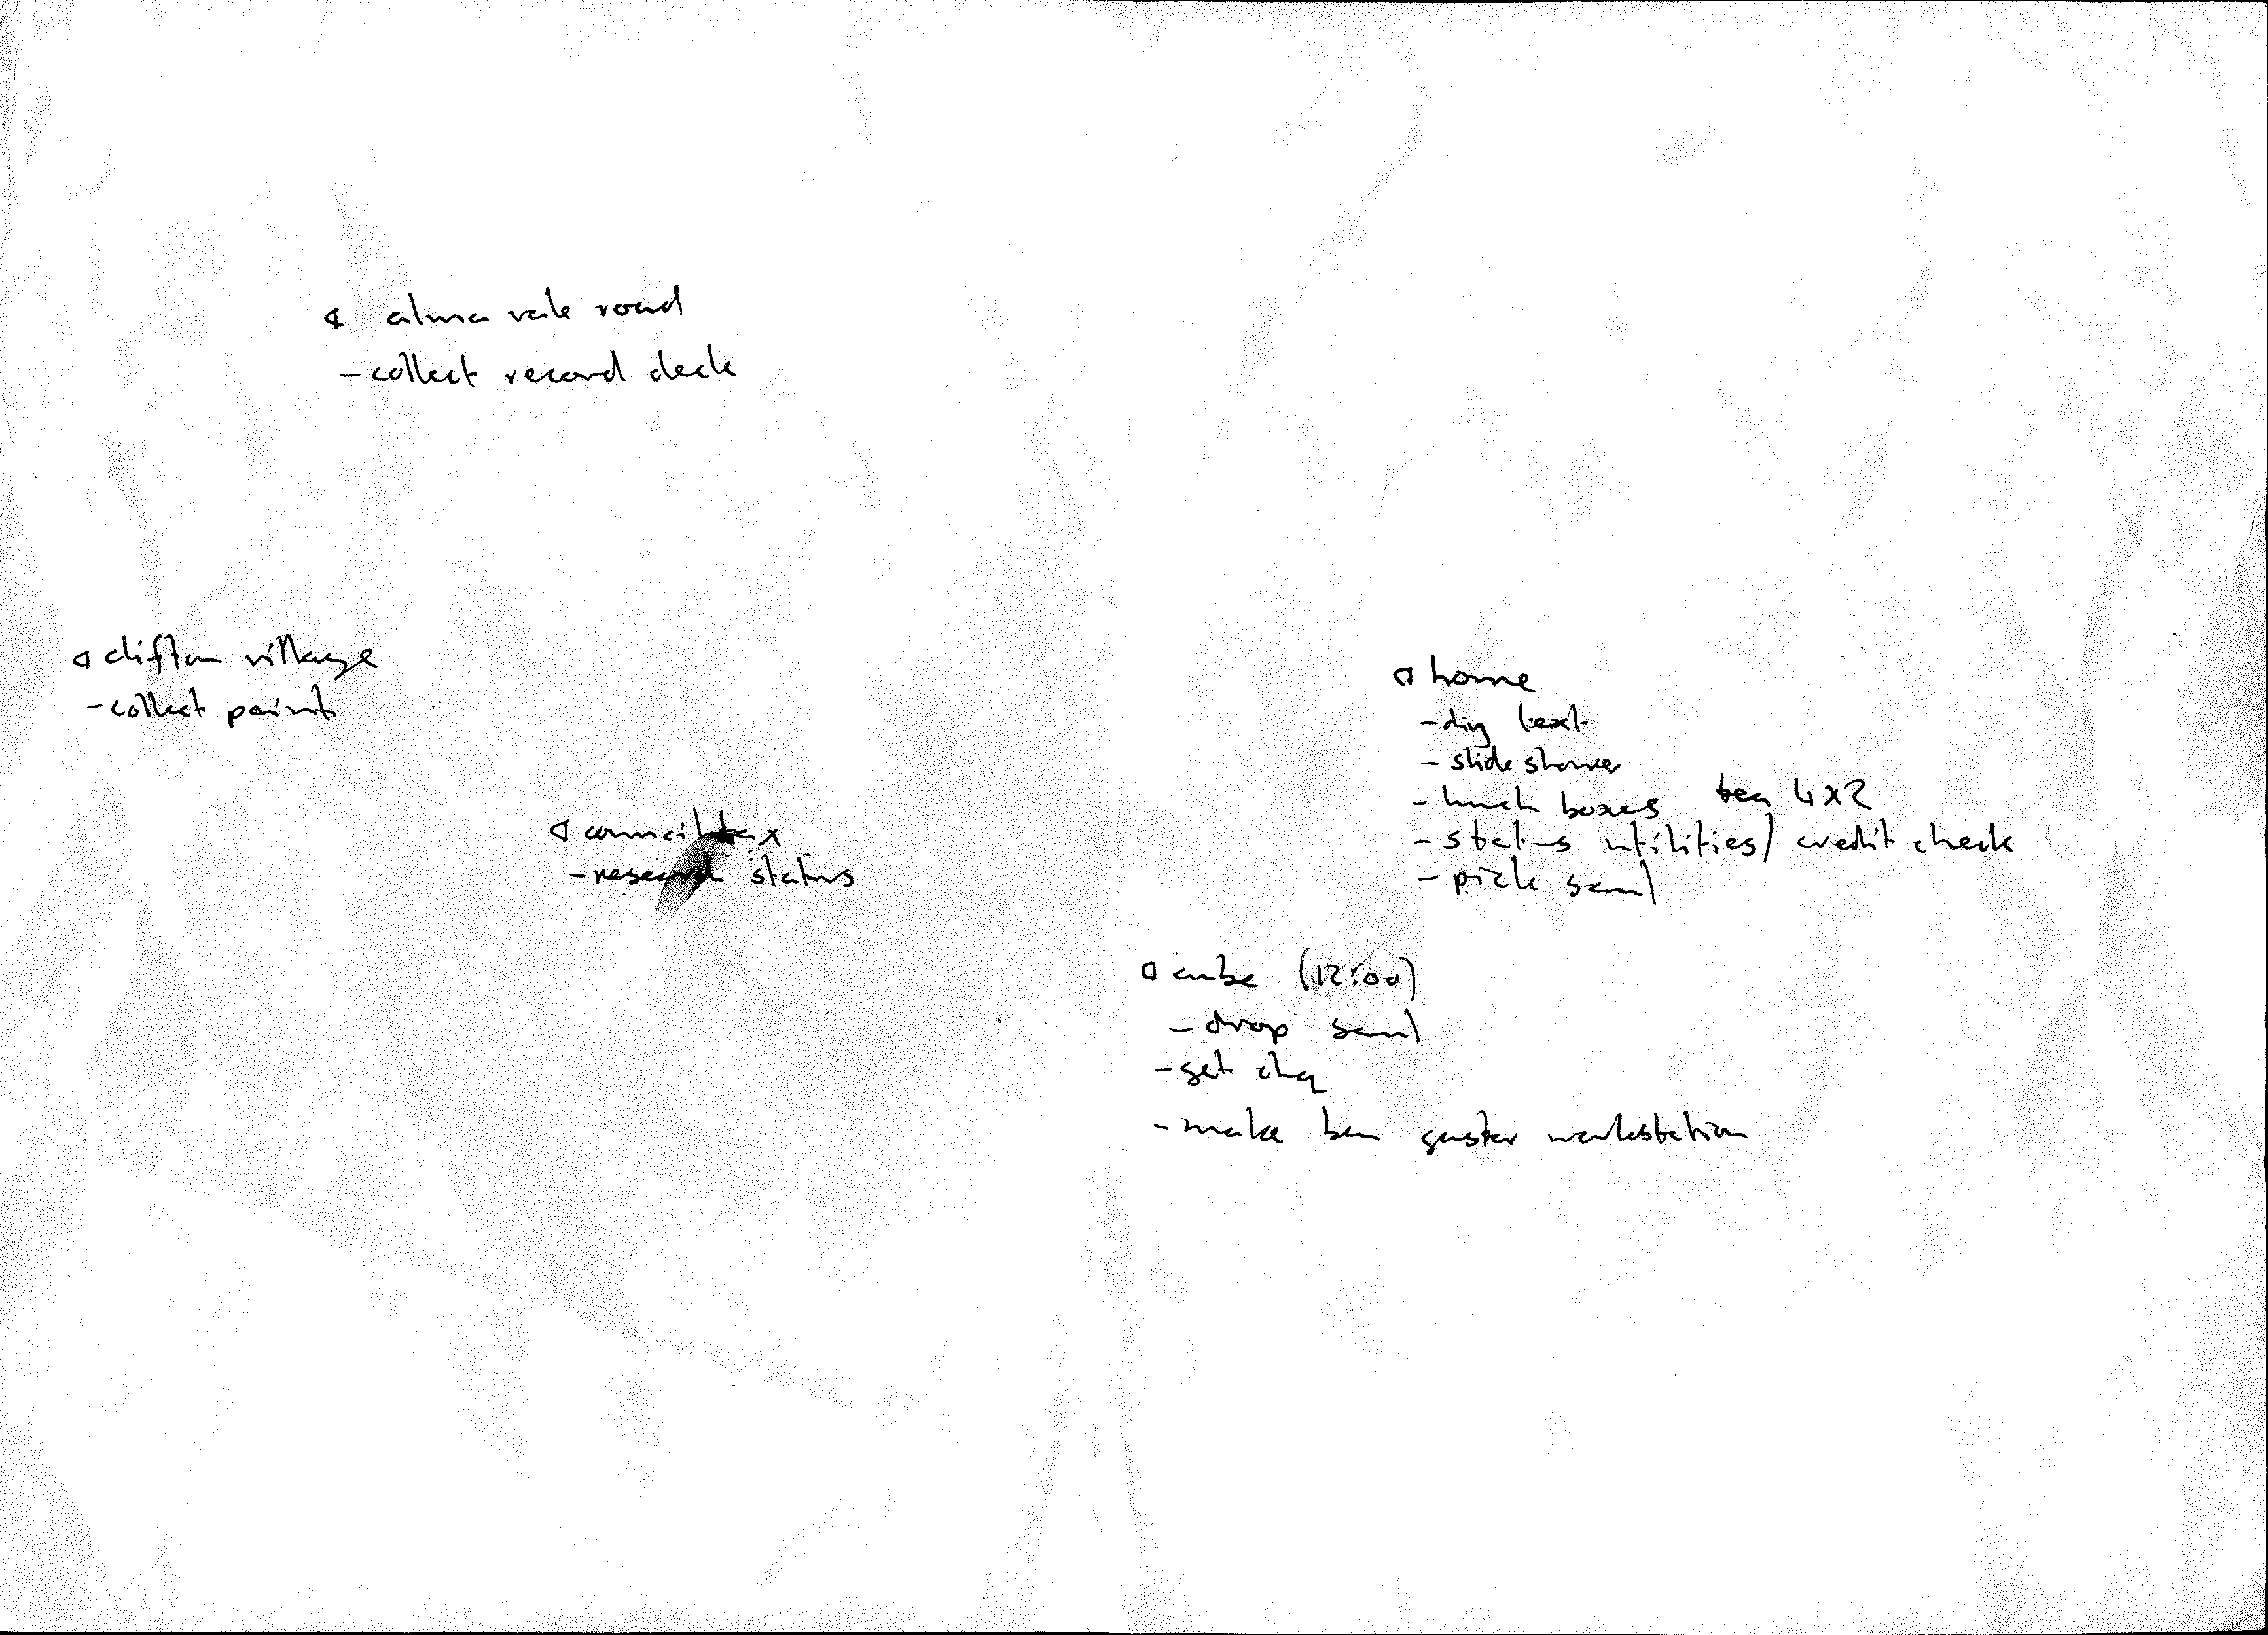 alma vale road
- collect record deck
clifton village
- collect paint
home
- diy text
- slide shower
- lunch boxes tea 4x2
- status utilities / credit check
- pick saul
council tax
- research status
cube (12:00)
- drop saul
- get chq
- make ben gaster workstation